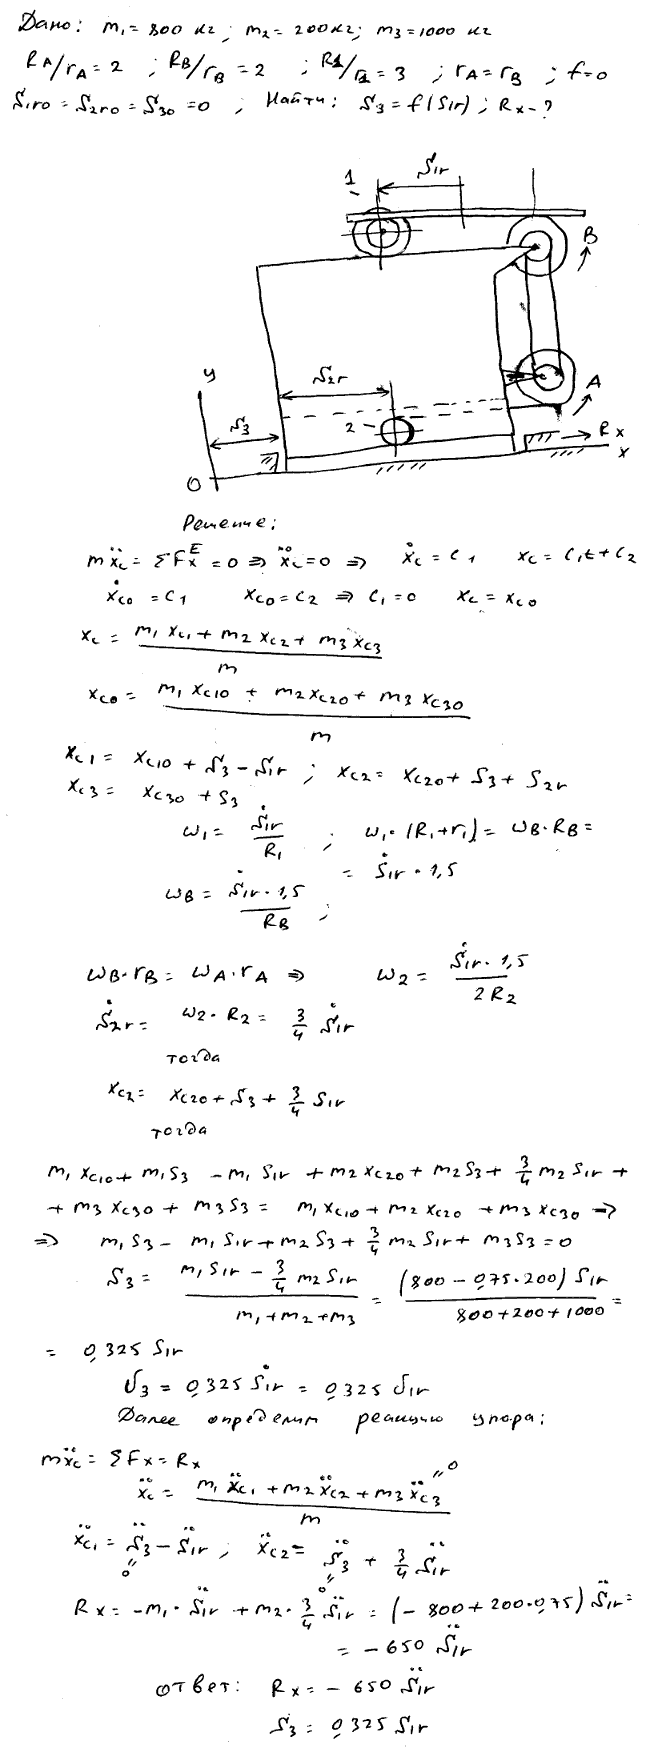 Дано: m₁ = 800 кг ; m₂ = 200 кг ; m₃ = 1000 кг
R_A/r_A = 2 ; R_B/r_B = 2 ; R₁/r₁ = 3 ; r_A = r_B ; f = 0
S₁r₀ = S₂r₀ = S₃₀ = 0 ; Найти: S₃ = f(S₁r) ; Rx - ?
1 S₁r
B
y S₂r A
S₃ 2 Rx
O x
Решение:
mẍ_c = ΣF_x^E = 0 ⇒ ẍ_c = 0 ⇒ ẋ_c = C₁ x_c = C₁t + C₂
ẋ_c0 = C₁ x_c0 = C₂ ⇒ C₁ = 0 x_c = x_c0
x_c = (m₁ x_c1 + m₂ x_c2 + m₃ x_c3) / m
x_c0 = (m₁ x_c10 + m₂ x_c20 + m₃ x_c30) / m
x_c1 = x_c10 + S₃ - S₁r ; x_c2 = x_c20 + S₃ + S₂r
x_c3 = x_c30 + S₃
ω₁ = Ṡ₁r / R₁ ; ω₁·(R₁+r₁) = ω_B·R_B =
= Ṡ₁r · 1,5
ω_B = Ṡ₁r · 1,5 / R_B ;
ω_B·r_B = ω_A·r_A ⇒ ω₂ = Ṡ₁r · 1,5 / 2R₂
Ṡ₂r = ω₂·R₂ = 3/4 Ṡ₁r
тогда
x_c2 = x_c20 + S₃ + 3/4 S₁r
тогда
m₁ x_c10 + m₁S₃ - m₁ S₁r + m₂ x_c20 + m₂S₃ + 3/4 m₂ S₁r +
+ m₃ x_c30 + m₃S₃ = m₁x_c10 + m₂ x_c20 + m₃ x_c30 ⇒
⇒ m₁S₃ - m₁ S₁r + m₂S₃ + 3/4 m₂ S₁r + m₃S₃ = 0
S₃ = (m₁S₁r - 3/4 m₂ S₁r) / (m₁ + m₂ + m₃) = (800 - 0,75·200) S₁r / (800 + 200 + 1000) =
= 0,325 S₁r
V₃ = 0,325 Ṡ₁r = 0,325 V₁r
Далее определим реакцию упора:
mẍ_c = ΣF_x = R_x
ẍ_c = (m₁ẍ_c1 + m₂ẍ_c2 + m₃ẍ_c3) / m " 0
ẍ_c1 = S̈₃ - S̈₁r ; ẍ_c2 = S̈₃ + 3/4 S̈₁r
" 0 " 0
R_x = -m₁·S̈₁r + m₂·3/4 S̈₁r = (-800 + 200·0,75) S̈₁r =
= -650 S̈₁r
ответ: R_x = -650 S̈₁r
S₃ = 0,325 S₁r